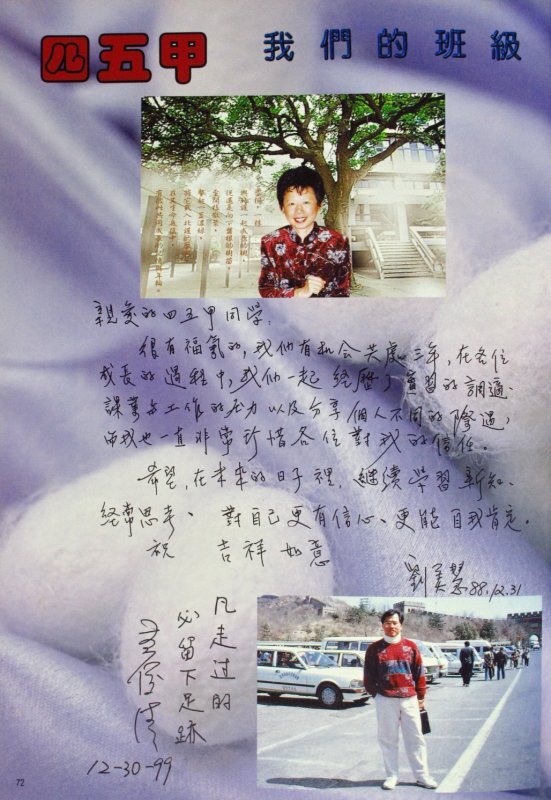 四五甲 我們的班級
親愛的四五甲同學:
很有福氣的,我们有机会共處三年,在各位
成長的過程中,我们一起經歷了實習的調適、
課業与工作的压力以及分享個人不同的際遇,
而我也一直非常珍惜各位對我的信任。
希望,在未來的日子裡,繼續學習新知、
經常思考、對自己更有信心、更能自我肯定。
祝 吉祥如意
劉美慧 88.12.31
凡走过的
必留下足跡
12-30-99
72